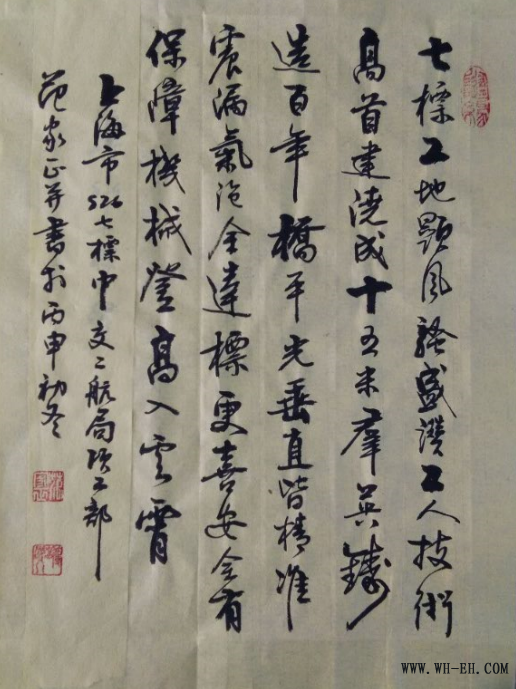 七標工地顯風骚盛讚工人技術
高首建澆成十五米羣英鑄
造百年橋平光垂直皆精準
震漏氣泡全達標更喜安全有
保障機械登高入雲霄
上海市S26七標中交二航局项工部
范家正并書於丙申初冬
WWW.WH-EH.COM